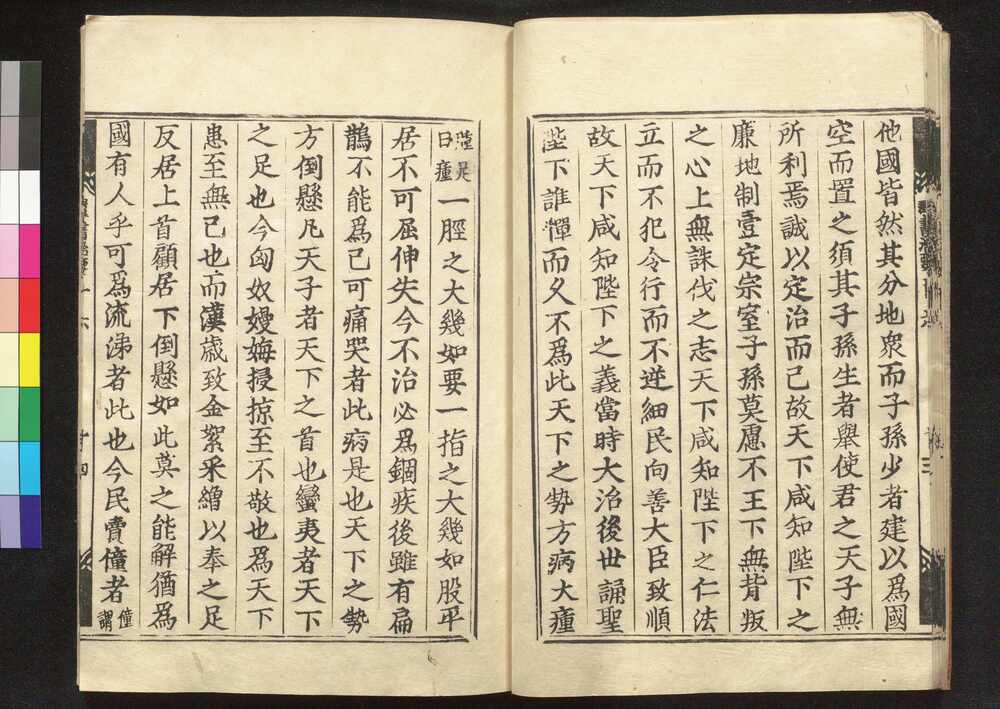 他國皆然其分地衆而子孫少者建以爲國
空而置之須其子孫生者舉使君之天子無
所利焉誠以定治而已故天下咸知陛下之
廉地制壹定宗室子孫莫慮不王下無背叛
之心上無誅伐之志天下咸知陛下之仁法
立而不犯令行而不逆細民向善大臣致順
故天下咸知陛下之義當時大治後世誦聖
陛下誰憚而久不爲此天下之勢方病大瘇
腫足
曰瘇
一脛之大幾如要一指之大幾如股平
居不可屈伸失今不治必爲錮疾後雖有扁
鵲不能爲已可痛哭者此病是也天下之勢
方倒懸凡天子者天下之首也蠻夷者天下
之足也今匈奴嫚侮掠至不敬也爲天下
患至無已也而漢歲致金絮采繒以奉之足
反居上首顧居下倒懸如此莫之能解猶爲
國有人乎可爲流涕者此也今民賣僮者
僮
謂